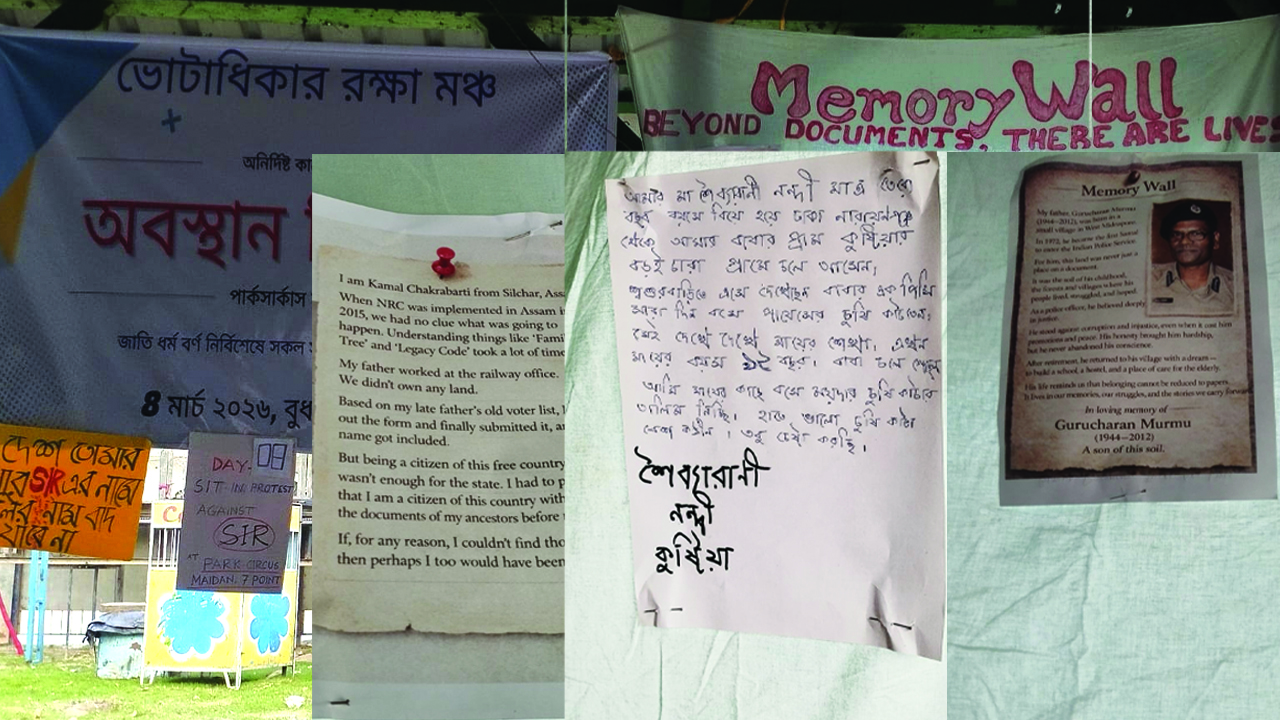 ভোটাধিকার রক্ষা মঞ্চ
অনির্দিষ্ট কা
অবস্থান
পার্কসার্কাস
জাতি ধর্ম বর্ণ নির্বিশেষে সকল
8 মার্চ ২০২৬, বুধ
দেশ তোমার
SIR এর নামে
নাম বাদ
যাবে না
DAY- 09
SIT-IN PROTEST
AGAINST
SIR
AT PARK CIRCUS
MAIDAN, 7 POINT
I am Kamal Chakrabarti from Silchar, Ass
When NRC was implemented in Assam i
2015, we had no clue what was going to
happen. Understanding things like 'Fami
Tree' and 'Legacy Code' took a lot of time
My father worked at the railway office.
We didn't own any land.
Based on my late father's old voter list, I
out the form and finally submitted it, a
name got included.
But being a citizen of this free country
wasn't enough for the state. I had to p
that I am a citizen of this country with
the documents of my ancestors before
If, for any reason, I couldn't find tho
then perhaps I too would have been
Memory Wall
BEYOND DOCUMENTS, THERE ARE LIVES
আমার মা শৈব্যারানী নন্দী মাত্র তেরো
বছর বয়সে বিয়ে হয়ে ঢাকা নারায়েনগঞ্জ
থেকে আমার বাবার গ্রাম কুষ্টিয়ার
গ্রামে চলে আসেন।
শ্বশুরবাড়িতে এসে দেখেছেন বাবার এক পিসি
সারা দিন বসে পায়েসের চুষি কাটতেন।
সেই দেখে দেখে মায়ের শেখা। এখন
মায়ের বয়স ৯২ বছর। বাবা চলে গেছেন
আমি মায়ের কাছে বসে ময়দার চুষি কাটার
তালিম নিচ্ছি। হাতে ভালো চুষি কাটা
বেশ কঠিন। তবু চেষ্টা করছি।
শৈব্যারানী
নন্দী
কুষ্টিয়া
Memory Wall
My father, Gurucharan Murmu
(1944–2012), was born in a
small village in West Midnapore.
In 1972, he became the first Santal
to enter the Indian Police Service.
For him, this land was never just a
place on a document.
It was the soil of his childhood,
the forests and villages where his
people lived, struggled, and hoped.
As a police officer, he believed deeply
in justice.
He stood against corruption and injustice, even when it cost him
promotions and peace. His honesty brought him hardship,
but he never abandoned his conscience.
After retirement, he returned to his village with a dream —
to build a school, a hostel, and a place of care for the elderly.
His life reminds us that belonging cannot be reduced to papers.
It lives in our memories, our struggles, and the stories we carry forward.
In loving memory of
Gurucharan Murmu
(1944–2012)
A son of this soil.